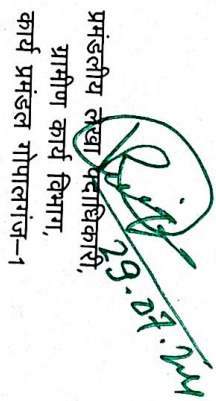 प्रमंडलीय लेखा पदाधिकारी,
ग्रामीण कार्य विभाग,
कार्य प्रमंडल गोपालगंज-1
29.07.